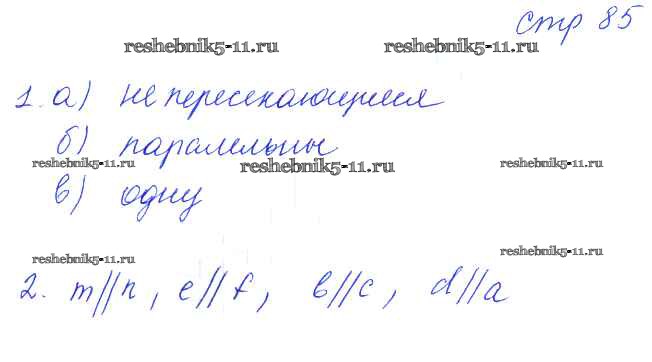 стр 85
reshebnik5-11.ru reshebnik5-11.ru
1. а) не пересекающиеся
б) паралельны
reshebnik5-11.ru reshebnik5-11.ru reshebnik5-11.ru
в) одну
reshebnik5-11.ru reshebnik5-11.ru
2. m//n, e//f, b//c, d//a